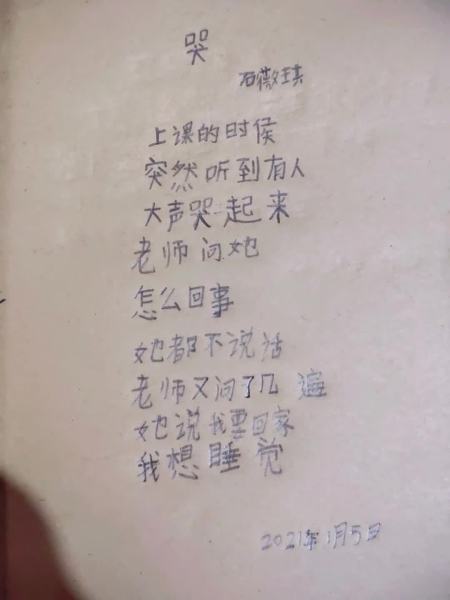 哭
石薇琪
上课的时侯
突然听到有人
大声哭起来
老师问她
怎么回事
她都不说话
老师又问了几遍
她说我要回家
我想睡觉
2021年1月5日